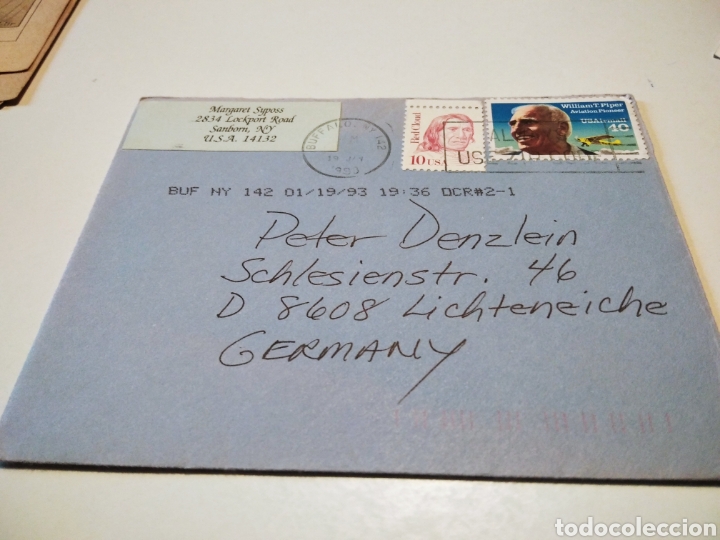 Margaret Syposs
2834 Lockport Road
Sanborn, NY
U.S.A. 14132
BUFFALO, NY 142
1993
Red Cloud
10 USA
William T. Piper
Aviation Pioneer
USAirmail
40
BUF NY 142 01/19/93 19:36 OCR#2-1
Peter Denzlein
Schlesienstr. 46
D 8608 Lichteneiche
GERMANY
todocoleccion